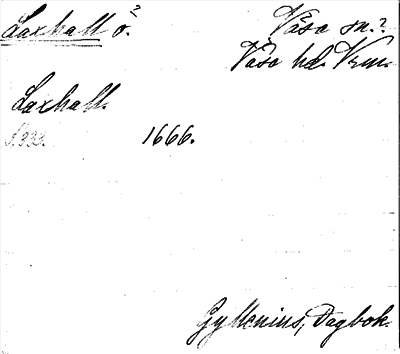 Laxhall ö.?
Våsa sn.?
Våsa hd. Vrm.
Laxhall.
S. 333.
1666.
Gyllenius, Dagbok.